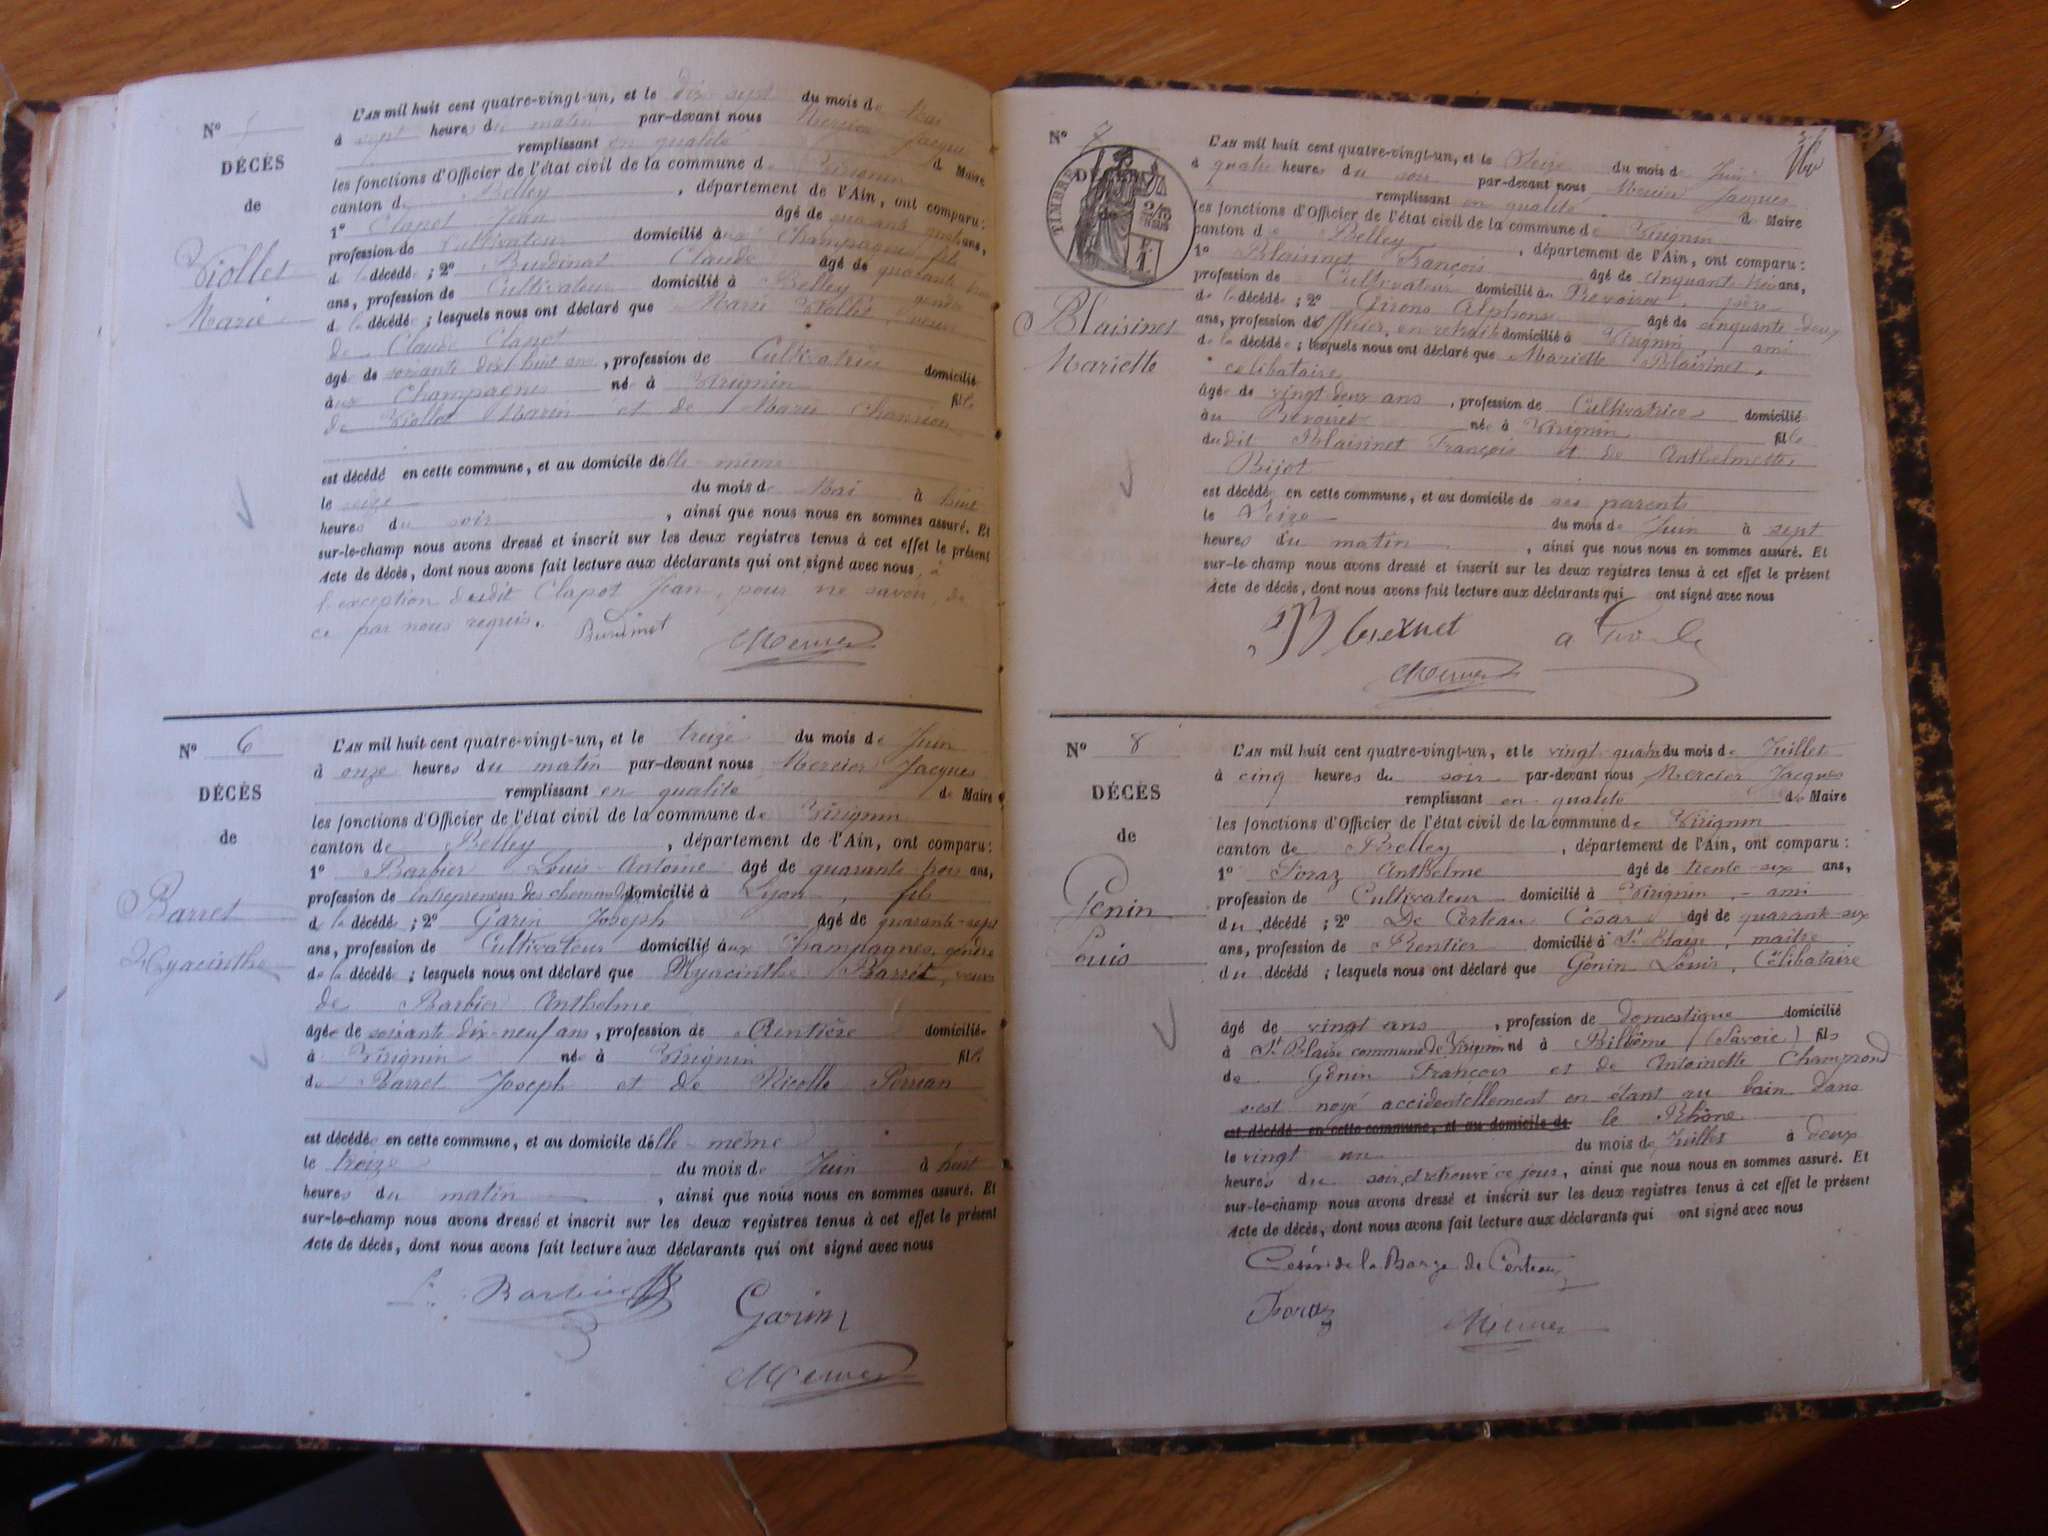 Nº
DÉCÈS
de
Viollet
Marie
L'AN mil huit cent quatre-vingt-un, et le dix sept du mois de Mai
à sept heures du matin par-devant nous Mercier Jacques
remplissant en qualité de Maire
les fonctions d'Officier de l'état civil de la commune de Virignin
canton de Belley, département de l'Ain, ont comparu:
1º Clapot Jean âgé de ans,
profession de Cultivateur domicilié aux Champagnes fils
de la décédée; 2º Claude âgé de quarante
ans, profession de Cultivateur domicilié à Belley gendre
de la décédée; lesquels nous ont déclaré que Marie Viollet, veuve
de Claude Clapot
âgée de soixante dix huit ans, profession de Cultivatrice domiciliée
aux Champagnes née à Virignin fille
de Viollet Marin et de Marie
est décédé en cette commune, et au domicile d'elle-même
le seize du mois de Mai à huit
heures du soir, ainsi que nous nous en sommes assuré. Et
sur-le-champ nous avons dressé et inscrit sur les deux registres tenus à cet effet le présent
Acte de décès, dont nous avons fait lecture aux déclarants qui ont signé avec nous, à
l'exception dudit Clapot Jean, pour ne savoir, de
ce par nous requis.
Mercier
Nº 6
DÉCÈS
de
Barret
Hyacinthe
L'AN mil huit cent quatre-vingt-un, et le treize du mois de Juin
à onze heures du matin par-devant nous Mercier Jacques
remplissant en qualité de Maire
les fonctions d'Officier de l'état civil de la commune de Virignin
canton de Belley, département de l'Ain, ont comparu:
1º Barbier Louis-Antoine âgé de quarante trois ans,
profession de Entrepreneur des chemins domicilié à Lyon, fils
de la décédée; 2º Garin Joseph âgé de quarante-sept
ans, profession de Cultivateur domicilié aux Champagnes, gendre
de la décédée; lesquels nous ont déclaré que Hyacinthe Barret, veuve
de Barbier Anthelme
âgée de soixante dix-neuf ans, profession de Rentière domiciliée
à Virignin née à Virignin fille
de Barret Joseph et de Nicolle Perrian
est décédée en cette commune, et au domicile d'elle-même
le treize du mois de Juin à huit
heures du matin, ainsi que nous nous en sommes assuré. Et
sur-le-champ nous avons dressé et inscrit sur les deux registres tenus à cet effet le présent
Acte de décès, dont nous avons fait lecture aux déclarants qui ont signé avec nous
Barbier
Garin
Mercier
Nº 7
TIMBRE
Blaisinet
Mariette
L'AN mil huit cent quatre-vingt-un, et le Seize du mois de Juin
à quatre heures du soir par-devant nous Mercier Jacques
remplissant en qualité de Maire
les fonctions d'Officier de l'état civil de la commune de Virignin
canton de Belley, département de l'Ain, ont comparu:
1º Blaisinet François âgé de cinquante trois ans,
profession de Cultivateur domicilié au Prevoiret, père
de la décédée; 2º Girons Alphonse âgé de cinquante-deux
ans, profession d'Officier en retraite domicilié à Virignin, ami
de la décédée; lesquels nous ont déclaré que Mariette Blaisinet,
célibataire
âgée de vingt deux ans, profession de Cultivatrice domicilié
au Prevoiret née à Virignin fille
dudit Blaisinet François et de Anthelmette
Bijot
est décédé en cette commune, et au domicile de ses parents
le Seize du mois de Juin à sept
heures du matin, ainsi que nous nous en sommes assuré. Et
sur-le-champ nous avons dressé et inscrit sur les deux registres tenus à cet effet le présent
Acte de décès, dont nous avons fait lecture aux déclarants qui ont signé avec nous
Mercier
Nº 8
DÉCÈS
de
Génin
Louis
L'AN mil huit cent quatre-vingt-un, et le vingt-quatre du mois de Juillet
à cinq heures du soir par-devant nous Mercier Jacques
remplissant en qualité de Maire
les fonctions d'Officier de l'état civil de la commune de Virignin
canton de Belley, département de l'Ain, ont comparu:
1º Foraz Anthelme âgé de trente-six ans,
profession de Cultivateur domicilié à Virignin, ami
du décédé; 2º De Certeau César âgé de quarante-six
ans, profession de Rentier domicilié à St Blaise, maître
du décédé; lesquels nous ont déclaré que Génin Louis, Célibataire
âgé de vingt ans, profession de domestique domicilié
à St Blaise commune de Virignin né à Billième (Savoie) fils
de Génin François et de Antoinette Champrond
s'est noyé accidentellement en étant au bain dans
est décédé en cette commune, et au domicile de le Rhône
le vingt un du mois de Juillet à deux
heures du soir, et retrouvé ce jour, ainsi que nous nous en sommes assuré. Et
sur-le-champ nous avons dressé et inscrit sur les deux registres tenus à cet effet le présent
Acte de décès, dont nous avons fait lecture aux déclarants qui ont signé avec nous
César de la Barge de Certeau
Foraz
Mercier